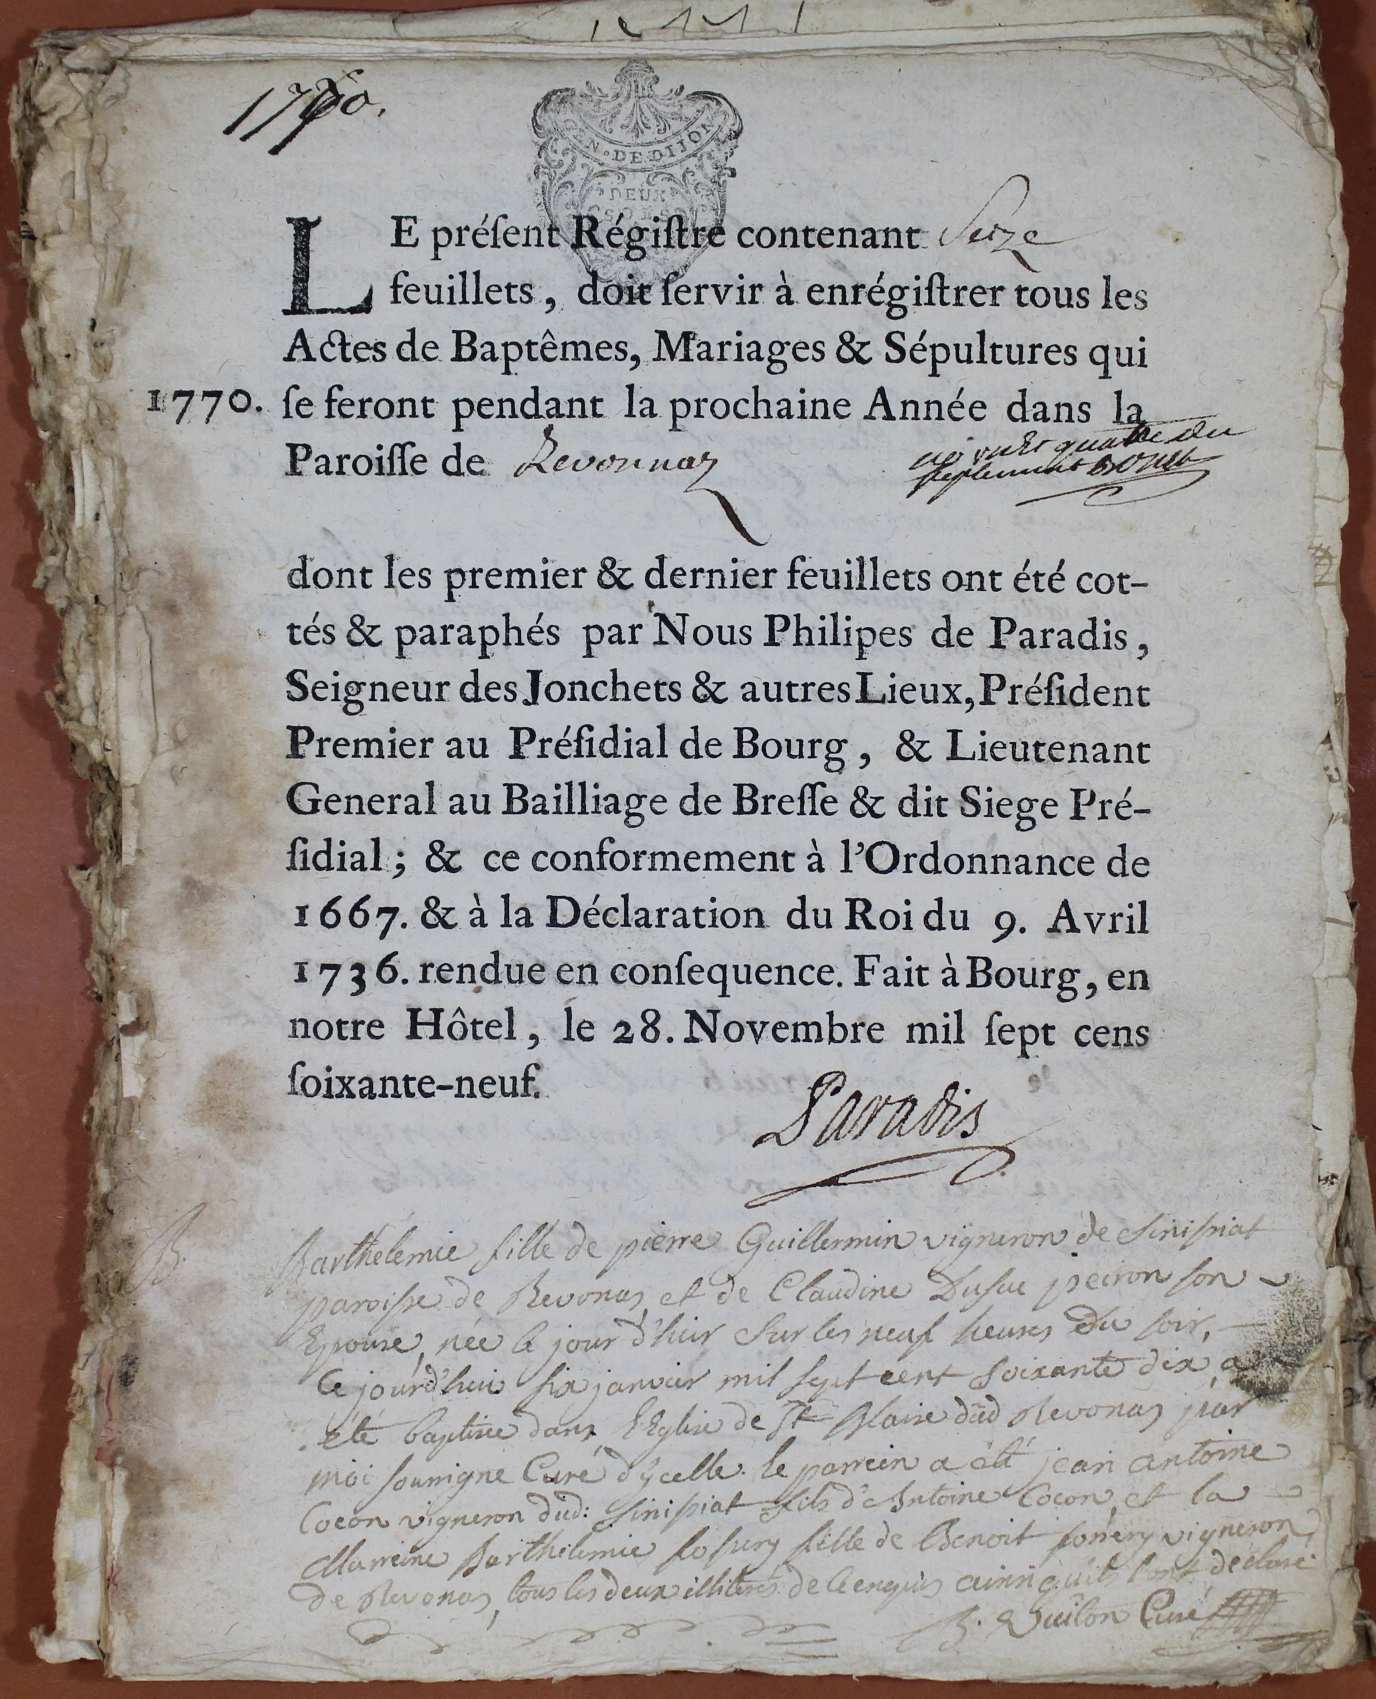 1770.
GEN. DE DIJON
DEUX
SOLS
LE préſent Régiſtre contenant Seize
feuillets, doit ſervir à enrégiſtrer tous les
Actes de Baptêmes, Mariages & Sépultures qui
1770. ſe feront pendant la prochaine Année dans la
Paroiſſe de Revonnaz
vingt quatre du
dont les premier & dernier feuillets ont été cot-
tés & paraphés par Nous Philipes de Paradis,
Seigneur des Jonchets & autres Lieux, Préſident
Premier au Préſidial de Bourg, & Lieutenant
General au Bailliage de Breſſe & dit Siege Pré-
ſidial; & ce conformement à l'Ordonnance de
1667. & à la Déclaration du Roi du 9. Avril
1736. rendue en conſequence. Fait à Bourg, en
notre Hôtel, le 28. Novembre mil ſept cens
ſoixante-neuf.
Paradis
B.
Barthélemie fille de pierre Guillermin vigneron de Sinissiat
paroisse de Revonas et de Claudine Dusuc peiron son
Epouse, née le jour d'hier sur les neuf heures du soir,
Ce jourd'hui six janvier mil sept cent soixante dix a
été baptisée dans l'Eglise de St Blaise dud Revonas par
moi soussigné Curé d'ycelle. le parrein a été jean antoine
Cocon vigneron dud: Sinissiat fils d'Antoine Cocon et la
Marreine Barthelemie fille de Benoit vigneron
de Revonas, tous les deux illiterés de ce enquis ainsi qu'ils l'ont déclaré
B. Vuilon Curé